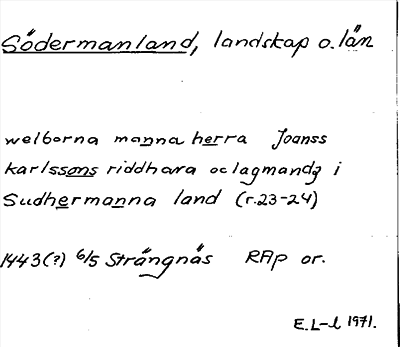 Södermanland, landskap o. län
welborna manna herra Joanss
karlssons riddhara oc lagmandz i
Sudhermanna land (r.23-24)
1443(?) 6/5 Strängnäs RAp or.
E.L-l 1971.